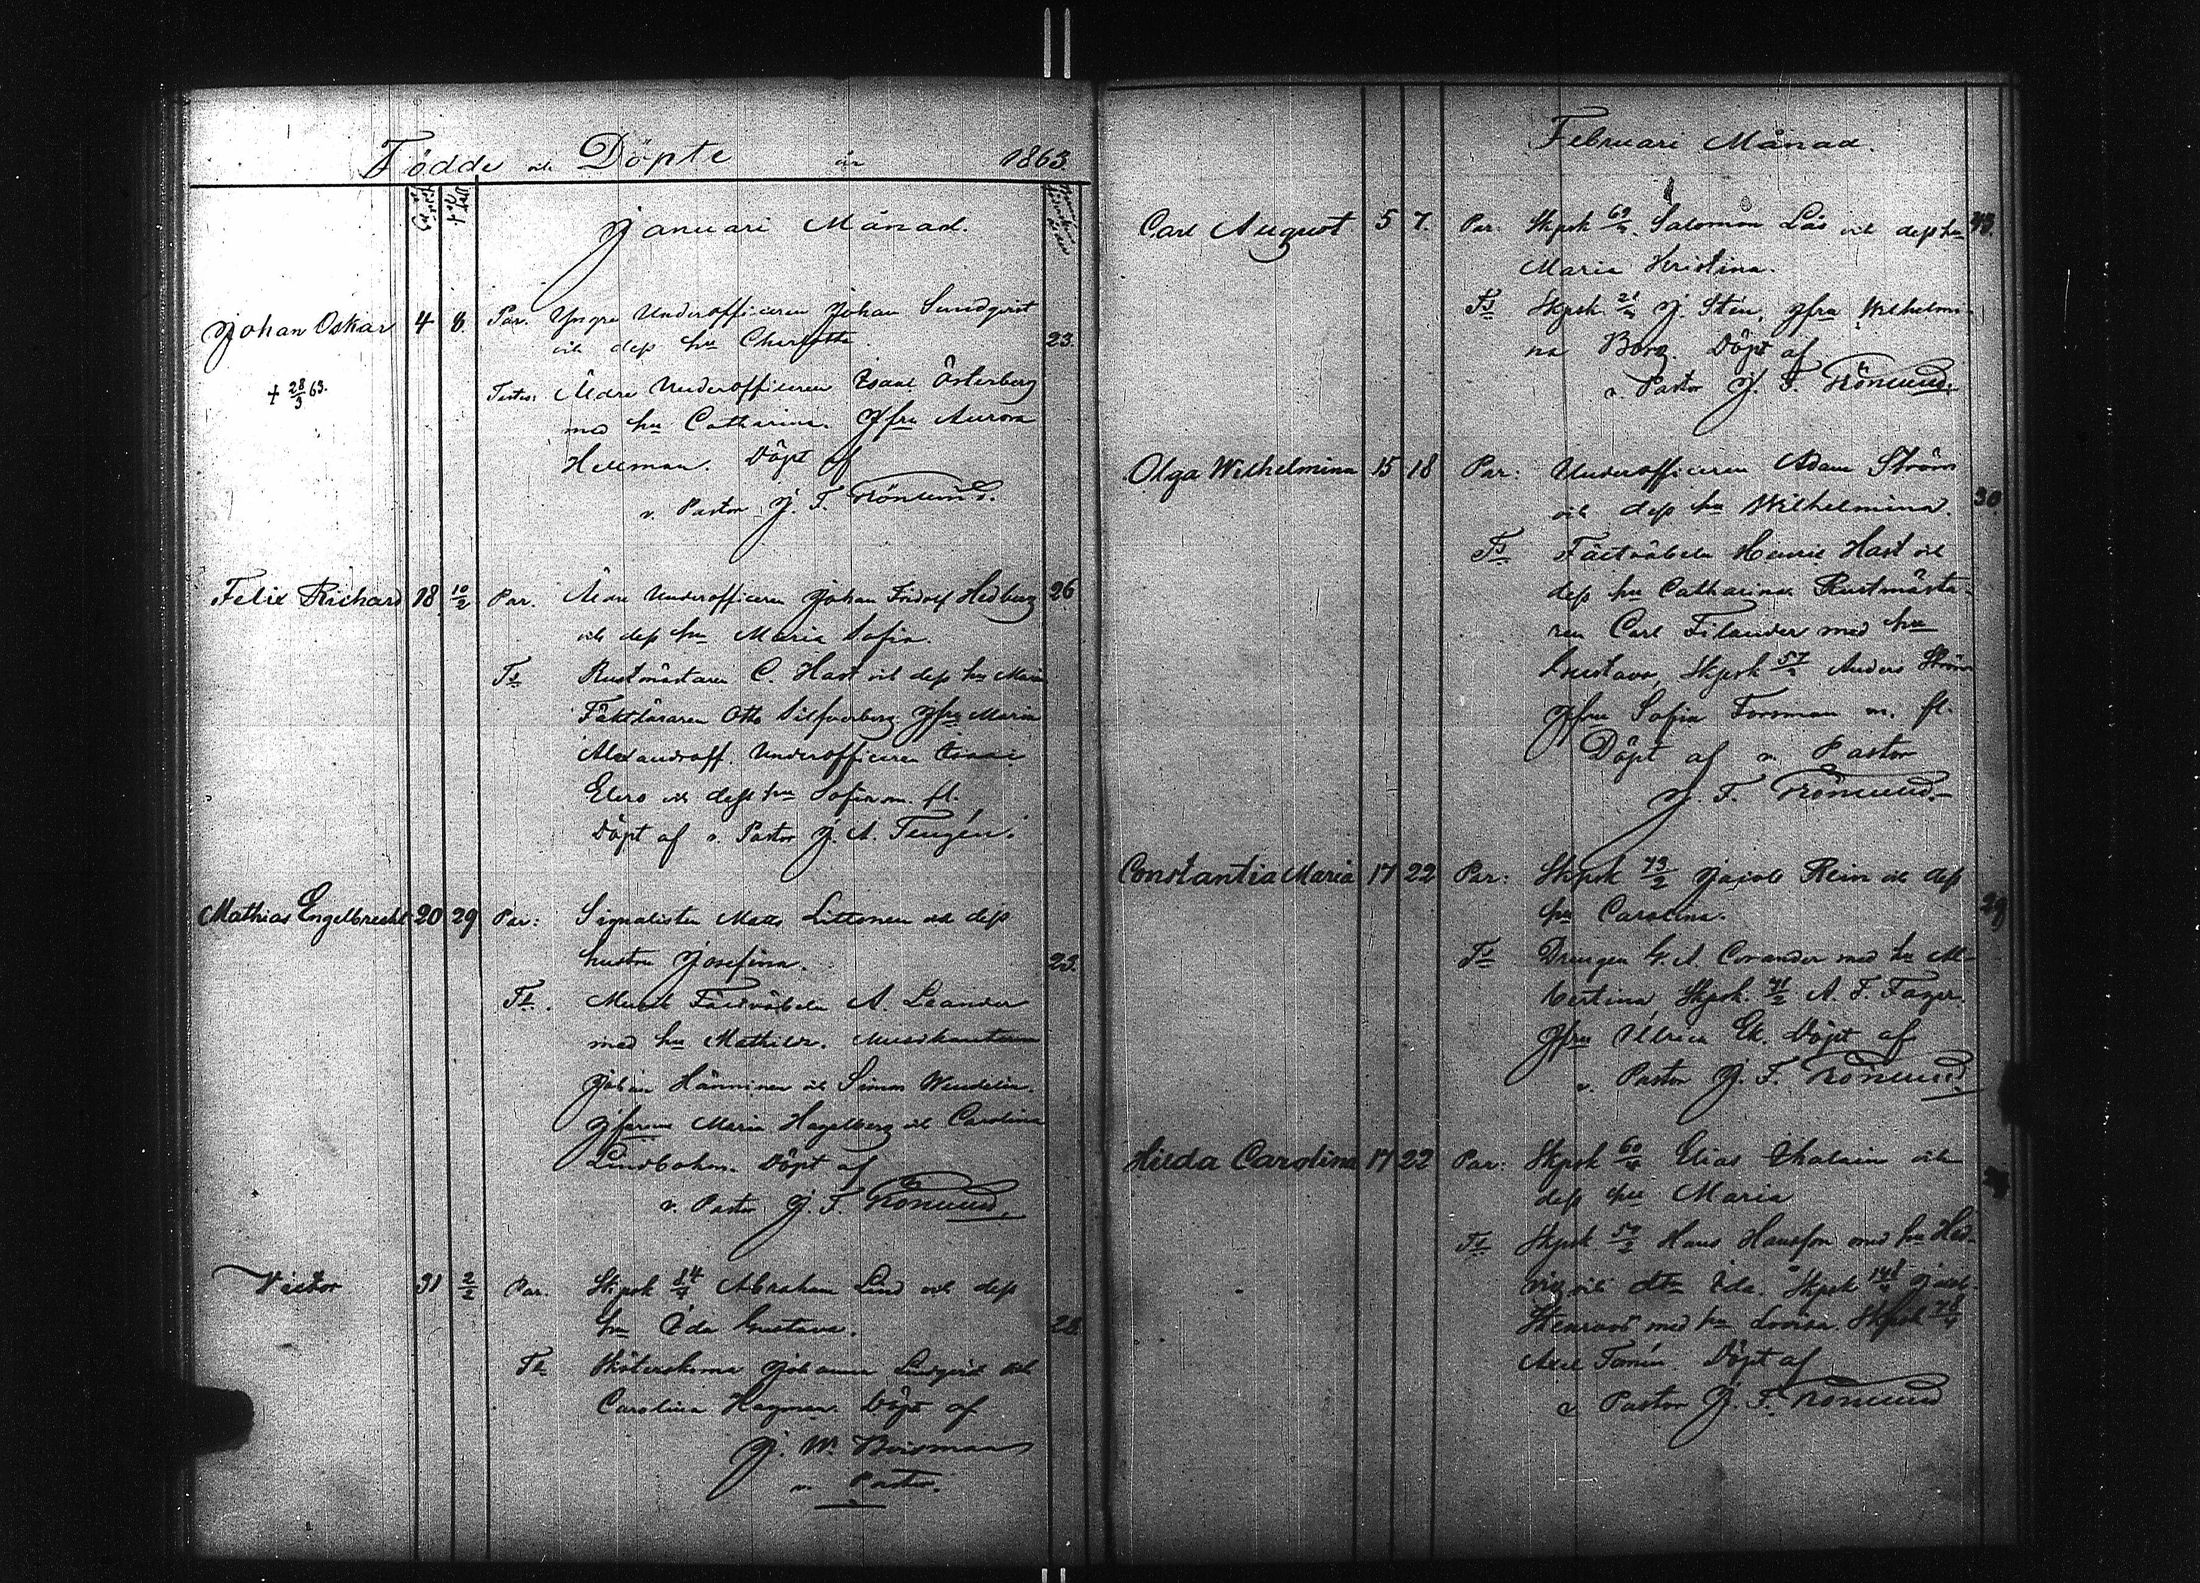 Födde och Döpte år 1863.
Januari Månad.
Johan Oskar 4 8. Par. Yngre Underofficeren Johan Sundqvist
och dess hu Charlotta. 23.
+ 28/3 63.
Testes: Äldre Underofficeren Isaac Österberg
med hu Catharina. Jfru Aurora
Hellman. Döpt af
v. Pastor J. F. Grönlund.
Felix Richard 18 10/2 Par. Äldre Underofficeren Johan Fridolf Hedberg 26
och dess hu Maria Sofia.
Ts Rustmästaren C. Hast och dess hu Maria
Fäktläraren Otto Silfverberg Jfru Maria
Alexandroff. Underofficeren
Elers och dess hu Sofia m. fl.
Döpt af v. Pastor J. A. Tengén.
Mathias Engelbrecht 20 29 Par: Signalisten Matts Littonen och dess
hustru Josefina. 23.
Ts. Musik Fältväbeln A. Leander
med hu Mathilda. Musikanterna
Johan Hänninen och Simon Wendelin.
Jfrurna Maria Hagelberg och Carolina
Lindbohm. Döpt af
v. Pastor J. F. Grönlund.
Victor 31 2/2 Par. Skpsk 84/4 Abraham Lind och dess
hu Eda Gustava. 28.
Ts Sköterskorna Johanna Lindqvist och
Carolina Hagman. Döpt af
J. W. Boisman
v. Pastor.
Februari Månad.
Carl August 5 7. Par: Skpsk Salomon Lås och dess hu 43.
Maria Kristina.
Ts Skpsk. J. Stén, Jfru Wilhelmi-
na Borg. Döpt af
v. Pastor J. F. Grönlund.
Olga Wilhelmina 15 18 Par: Underofficeren Adam Ström
och dess hu Wilhelmina. 30
Ts Fältväbeln Henric Hast och
dess hu Catharina Rustmästa-
ren Carl Filander med hu
Gustava, Skpsk 57/2 Anders Ström
Jfru Sofia Forsman m. fl.
Döpt af v. Pastor
J. F. Grönlund.
Constantia Maria 17 22 Par: Skpsk 73/2 Jacob Rein och dess
hu Carolina. 29
Ts Drengen G. A. Corander med hu Al-
bertina, Skpsk. 71/2 A. F. Fager.
Jfru Ulrica Ek. Döpt af
v. Pastor J. F. Grönlund
Hilda Carolina 17 22 Par: Skpsk 60/4 Elias och
dess hu Maria
Ts Skpsk 50/2 Hans Hansson med hu Hed-
vig och Ida. Skpsk Jacob
Stenroos med hu Lovisa. Skpsk
Axel Tamén. Döpt af
v. Pastor J. F. Grönlund